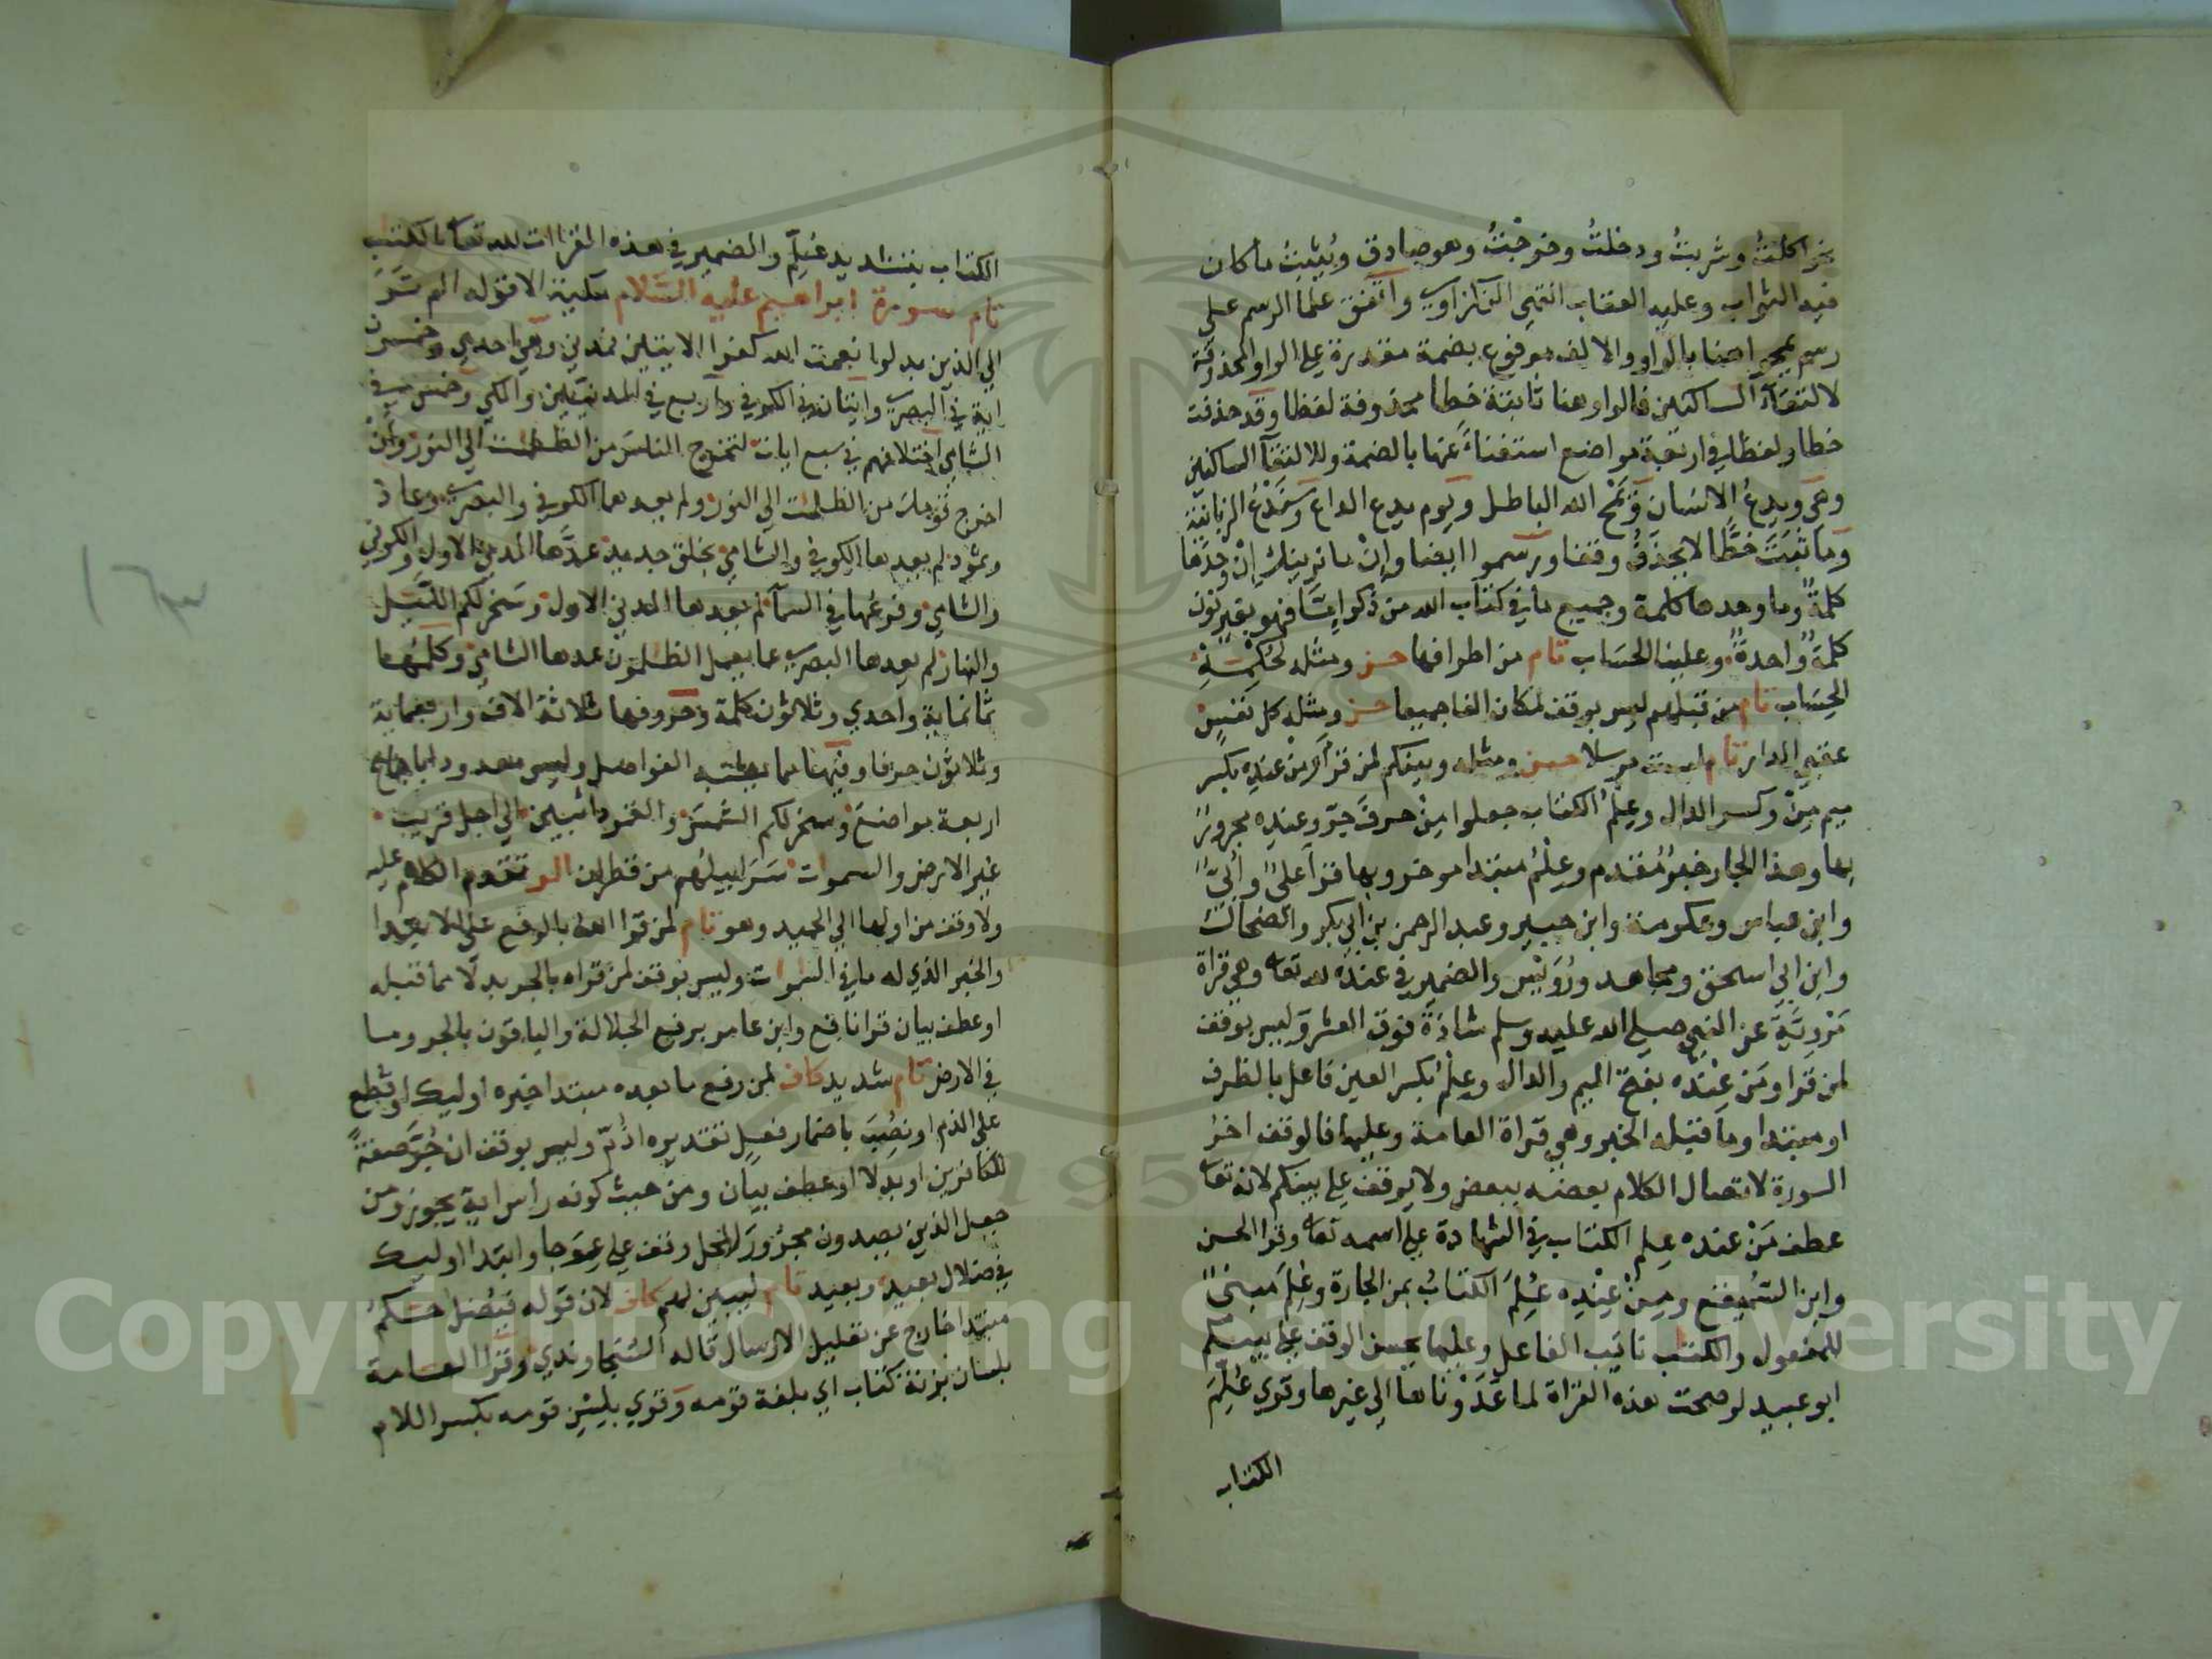 نحو اكلتُ وشربتُ ودخلتُ وخرجتُ وهو صادق ويُثبِتُ ما كان
فيه الثواب وعليه العقاب انتهى النكزاوي واتفق علما الرسم على
رسم يمحوا هنا بالواو والالف مرفوع بضمة مقدرة على الواو المحذوفة
لالتقآء الساكنين فالواو هنا ثابتة خطا محذوفة لفظا وقد حذفت
خطا ولفظا في اربعة مواضع استغناءً عنها بالضمة وللالتقآ الساكنين
وهى ويدعُ الانسان وَيَمْحُ الله الباطل ويوم يدع الداع وسَنَدْعُ الزبانية
وما ثبَتَ خطًّا لا يحذفُ وقفا ورسموا ايضا وإنْ ما نرينك إنْ وحدَها
كلمةً وما وحدها كلمة وجميع ما في كتاب الله من ذكر إمّا فهو بغير نون
كلمةً واحدةً وعلينا الحسَاب تام من اطرافها حسن ومثله لحُكمِهِ
الحِسَاب تام من قبلهم ليس بوقف لمكان الفا جميعا حسن ومثله كل نفسٍ
عقبى الدار تام لست مرسلا حسن ومثله وبينكم لمن قرأ ومِنْ عِندِه بكسر
ميم مِنْ وكسر الدال وعِلْمُ الكتاب جعلوا مِنْ حرفَ جرٍّ وعندِه مجرورًا
بها وهذا الجار خبرٌ مُقدم وعِلْمُ مبتدا موخر وبها قرأ عليٌّ وأُبَيٌّ
وابن عباس وعكرمة وابن جبير وعبد الرحمن بن أبي بكر والضحاك
وابن ابي اسحق ومجاهد ورُوَيْس والضمير في عنده لله تعا وهي قراة
مَرْويّة عن النبي صلى الله عليه وسلم شاذة فوق العشر وليس بوقف
لمن قرا ومَن عِنْدَه بفتح الميم والدال وعِلْمُ بكسر العين فاعل بالظرف
او مبتدا وما قبله الخبر وهي قراة العامة وعليها فالوقف اخرُ
السورة لاتصال الكلام بعضه ببعض ولا يوقف على بينكم لانه تعا
عطف مَنْ عنده علم الكتاب في الشهادة على اسمه تعا وقرا الحسن
وابن السَّمَيفَع ومِنْ عِنْدِه عُلِمَ الكتابُ بمن الجارة وعُلِمَ مبنيًّا
للمفعول والكتب نائب الفاعل وعليها يحسن الوقف على بينكم
ابو عبيد لو صحت هذه القراة لما عَدَوْناها الى غيرها وقري عُلِّمَ
الكتاب
الكتاب بتشديد عُلِّم والضمير في هذه القراات لله تعا بالكتب
تام سورة ابراهيم عليه السّلام مكية الا قوله الم تَرَ
الى الذين بدلوا نعمت الله كفرا الايتين فمدني وهي احدى وخمسون
اية في البصري واثنان في الكوفي واربع في المدنيين والمكي وخمس في
الشامي اختلافهم في سبع ايات لتخرج الناسَ من الظلمت الى النور وأنْ
اخرج قومك من الظلمت الى النور ولم يعدهما الكوفي والبصري وعاد
وثمود لم يعدها الكوفي والشامي بخلق جديد عدَّها المدني الاول والكوفي
والشامي وفرعُها في السمآ لم يعدها المدني الاول وسَخر لكم الليّل
والنهار لم يعدها البصري عما يعمل الظلمون عدها الشامي وكلمُها
ثمانماية واحدى وثلاثون كلمة وحروفها ثلاثة الاف واربعماية
وثلاثون حرفا وفيها مما يشبه الفواصل وليس معدودا باجماع
اربعة مواضعَ وسخر لكم الشمسَ والقمر دائبين الى اجل قريب
غير الارض والسموات سَرَابيلُهم من قطران الر تقدم الكلام عليه
ولا وقف من اولها الى الحميد وهو تام لمن قرا اللهُ بالرفع على الابتدا
والخبر الذي له ما في السموات وليس بوقف لمن قراه بالجر بدلًا مما قبله
او عطف بيان قرا نافع وابن عامر برفع الجلالة والباقون بالجر وما
في الارض تام شديد كاف لمن رفع ما بعده مبتدا خبره اوليك او قُطع
على الذم او نصِبَ باضمار فعل تقديره اذُمّ وليس بوقف ان جُرَّ صفةً
للكافرين او بدلا او عطف بيان ومن حيث كونه راس اية يجوز ومن
جعل الذين يصدون مجرُورَ المحل وقف على عِوَجا وابتدا اوليك
في ضلال بعيد وبعيد تام ليبين لهم كاف لان قوله فيُضل حكمٌ
مبتدا خارج عن تعليل الارسال قاله السجاوندي وقرا العامة
بلسان بزنة كتاب اي بلغة قومه وقري بلِسْنِ قومه بكسر اللام